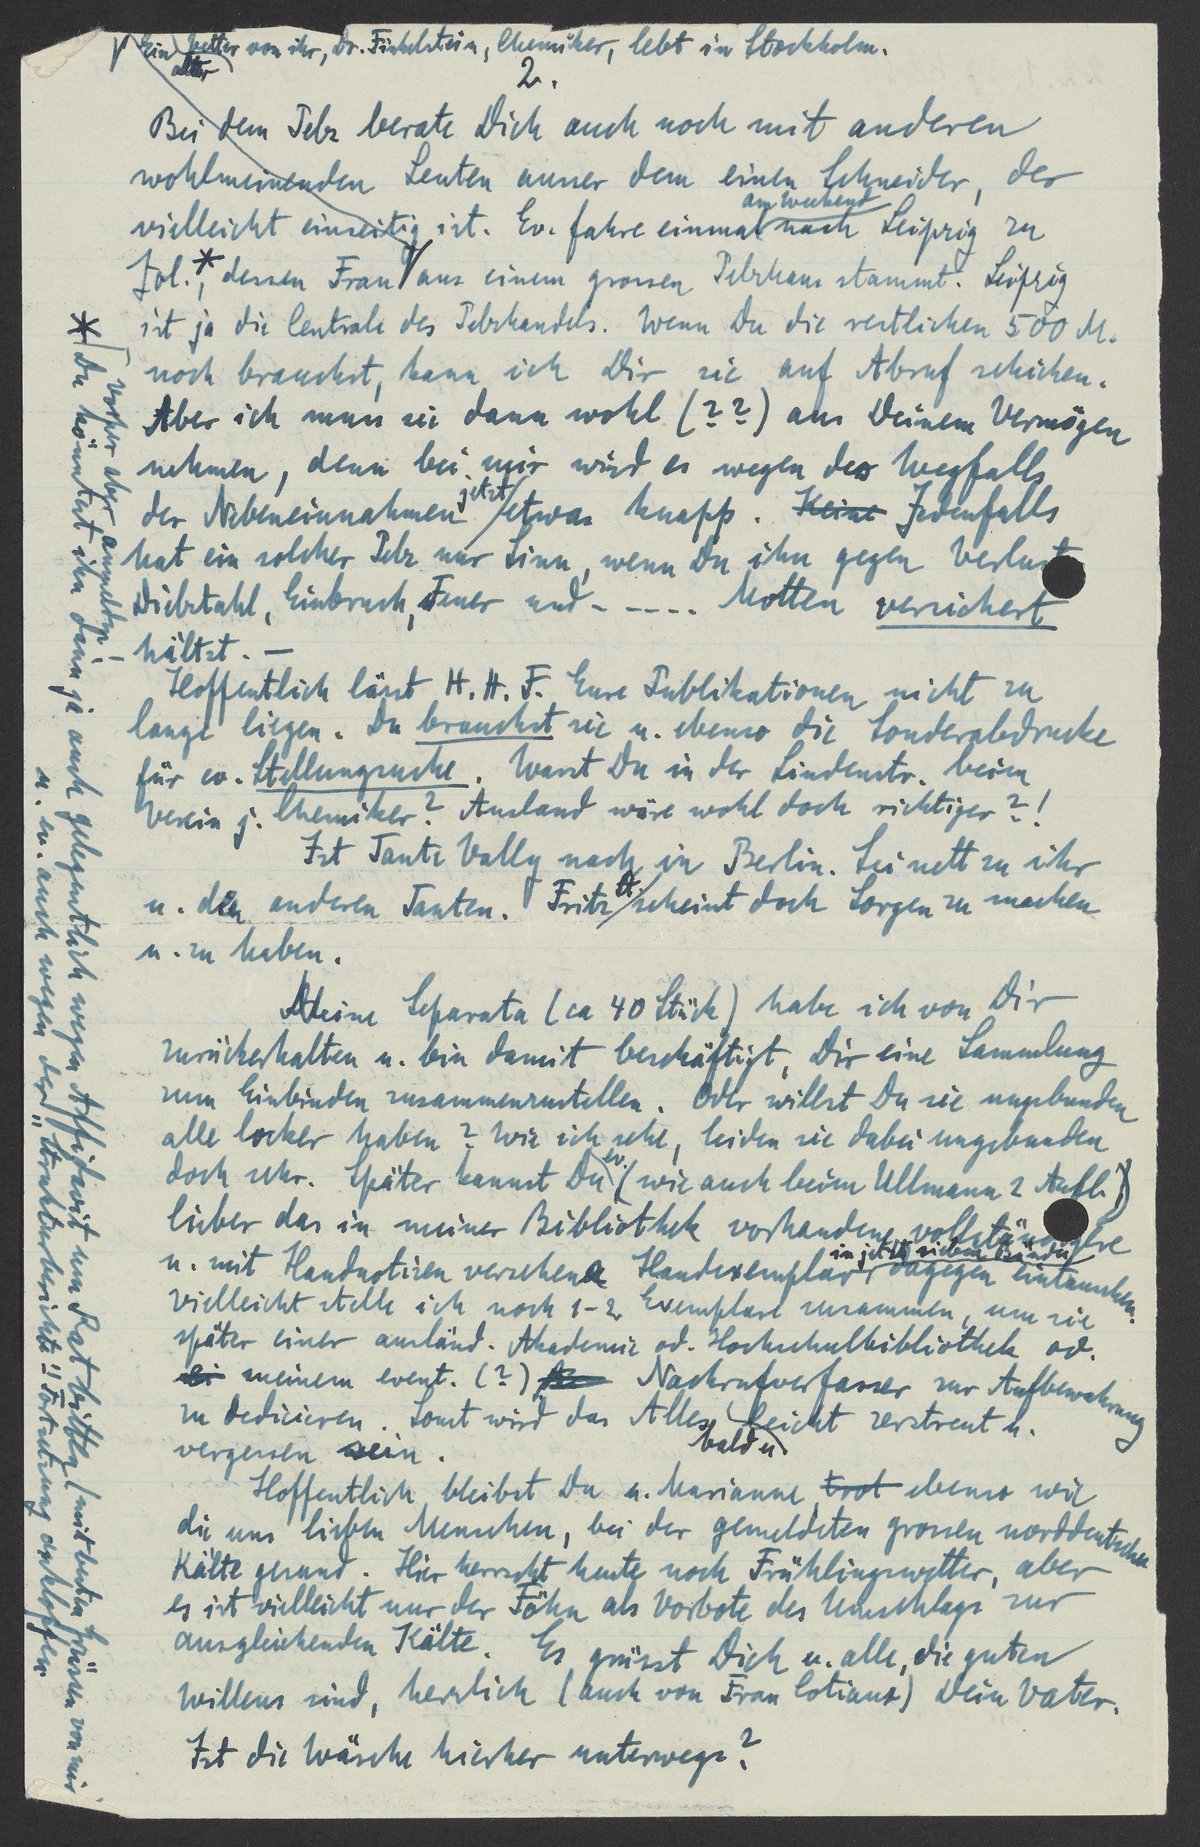 Ein Vetter von ihr, Dr. Finkelstein, Chemiker, lebt in Stockholm.
alter
2.
Bei dem Pelz berate Dich auch noch mit anderen
wohlmeinenden Leuten ausser dem einen Schneider, der
vielleicht einseitig ist. Ev. fahre einmal am Weekend nach Leipzig zu
Jol.*, dessen Frau aus einem grossen Pelzhaus stammt. Leipzig
ist ja die Centrale des Pelzhandels. Wenn Du die restlichen 500 M.
noch brauchst, kann ich Dir sie auf Abruf schicken.
Aber ich muss sie dann wohl (??) aus Deinem Vermögen
nehmen, denn bei mir wird es wegen des Wegfalls
der Nebeneinnahmen jetzt etwas knapp. Keine Jedenfalls
hat ein solcher Pelz nur Sinn, wenn Du ihn gegen Verlust
Diebstahl, Einbruch, Feuer und - ---- Motten versichert
hältst. —
Hoffentlich lässt H. H. F. Eure Publikationen nicht zu
lange liegen. Du brauchst sie u. ebenso die Sonderabdrucke
für ev. Stellungsuche. Warst Du in der Lindenstr. beim
Verein j. Chemiker? Ausland wäre wohl doch richtiger?!
Ist Tante Vally noch in Berlin. Sei nett zu ihr
u. den anderen Tanten. Fritz A. scheint doch Sorgen zu machen
u. zu haben.
Meine Separata (ca 40 Stück) habe ich von Dir
zurückerhalten u. bin damit beschäftigt, Dir eine Sammlung
zum Einbinden zusammenzustellen. Oder willst Du sie ungebunden
alle locker haben? Wie ich sehe, leiden sie dabei ungebunden
doch sehr. Später kannst Du ev. (wie auch beim Ullmann 2 Aufl.)
lieber das in meiner Bibliothek vorhandene vollständigere
u. mit Handnotizen versehene Handexemplar in jetzt sieben Bänden dagegen eintauschen.
Vielleicht stelle ich noch 1-2 Exemplare zusammen, um sie
später einer ausländ. Akademie od. Hochschulbibliothek od.
meinem event. (?) Nachrufverfasser zur Aufbewahrung
zu dedicieren. Sonst wird das Alles bald u. leicht zerstreut u.
vergessen sein.
Hoffentlich bleibst Du u. Marianne, trot ebenso wie
die uns lieben Menschen, bei der gemeldeten grossen norddeutschen
Kälte gesund. Hier herrscht heute noch Frühlingswetter, aber
es ist vielleicht nur der Föhn als Vorbote des Umschlags zur
ausgleichenden Kälte. Es grüsst Dich u. alle, die guten
Willens sind, herzlich (auch von Frau Cotiaux) Dein Vater.
Ist die Wäsche hierher unterwegs?
[vorher aber
* Du könntest ihn dann ja auch gelegentlich wegen Affidavit um Rat bitten (mit besten Grüssen von mir
u. ev. auch wegen der